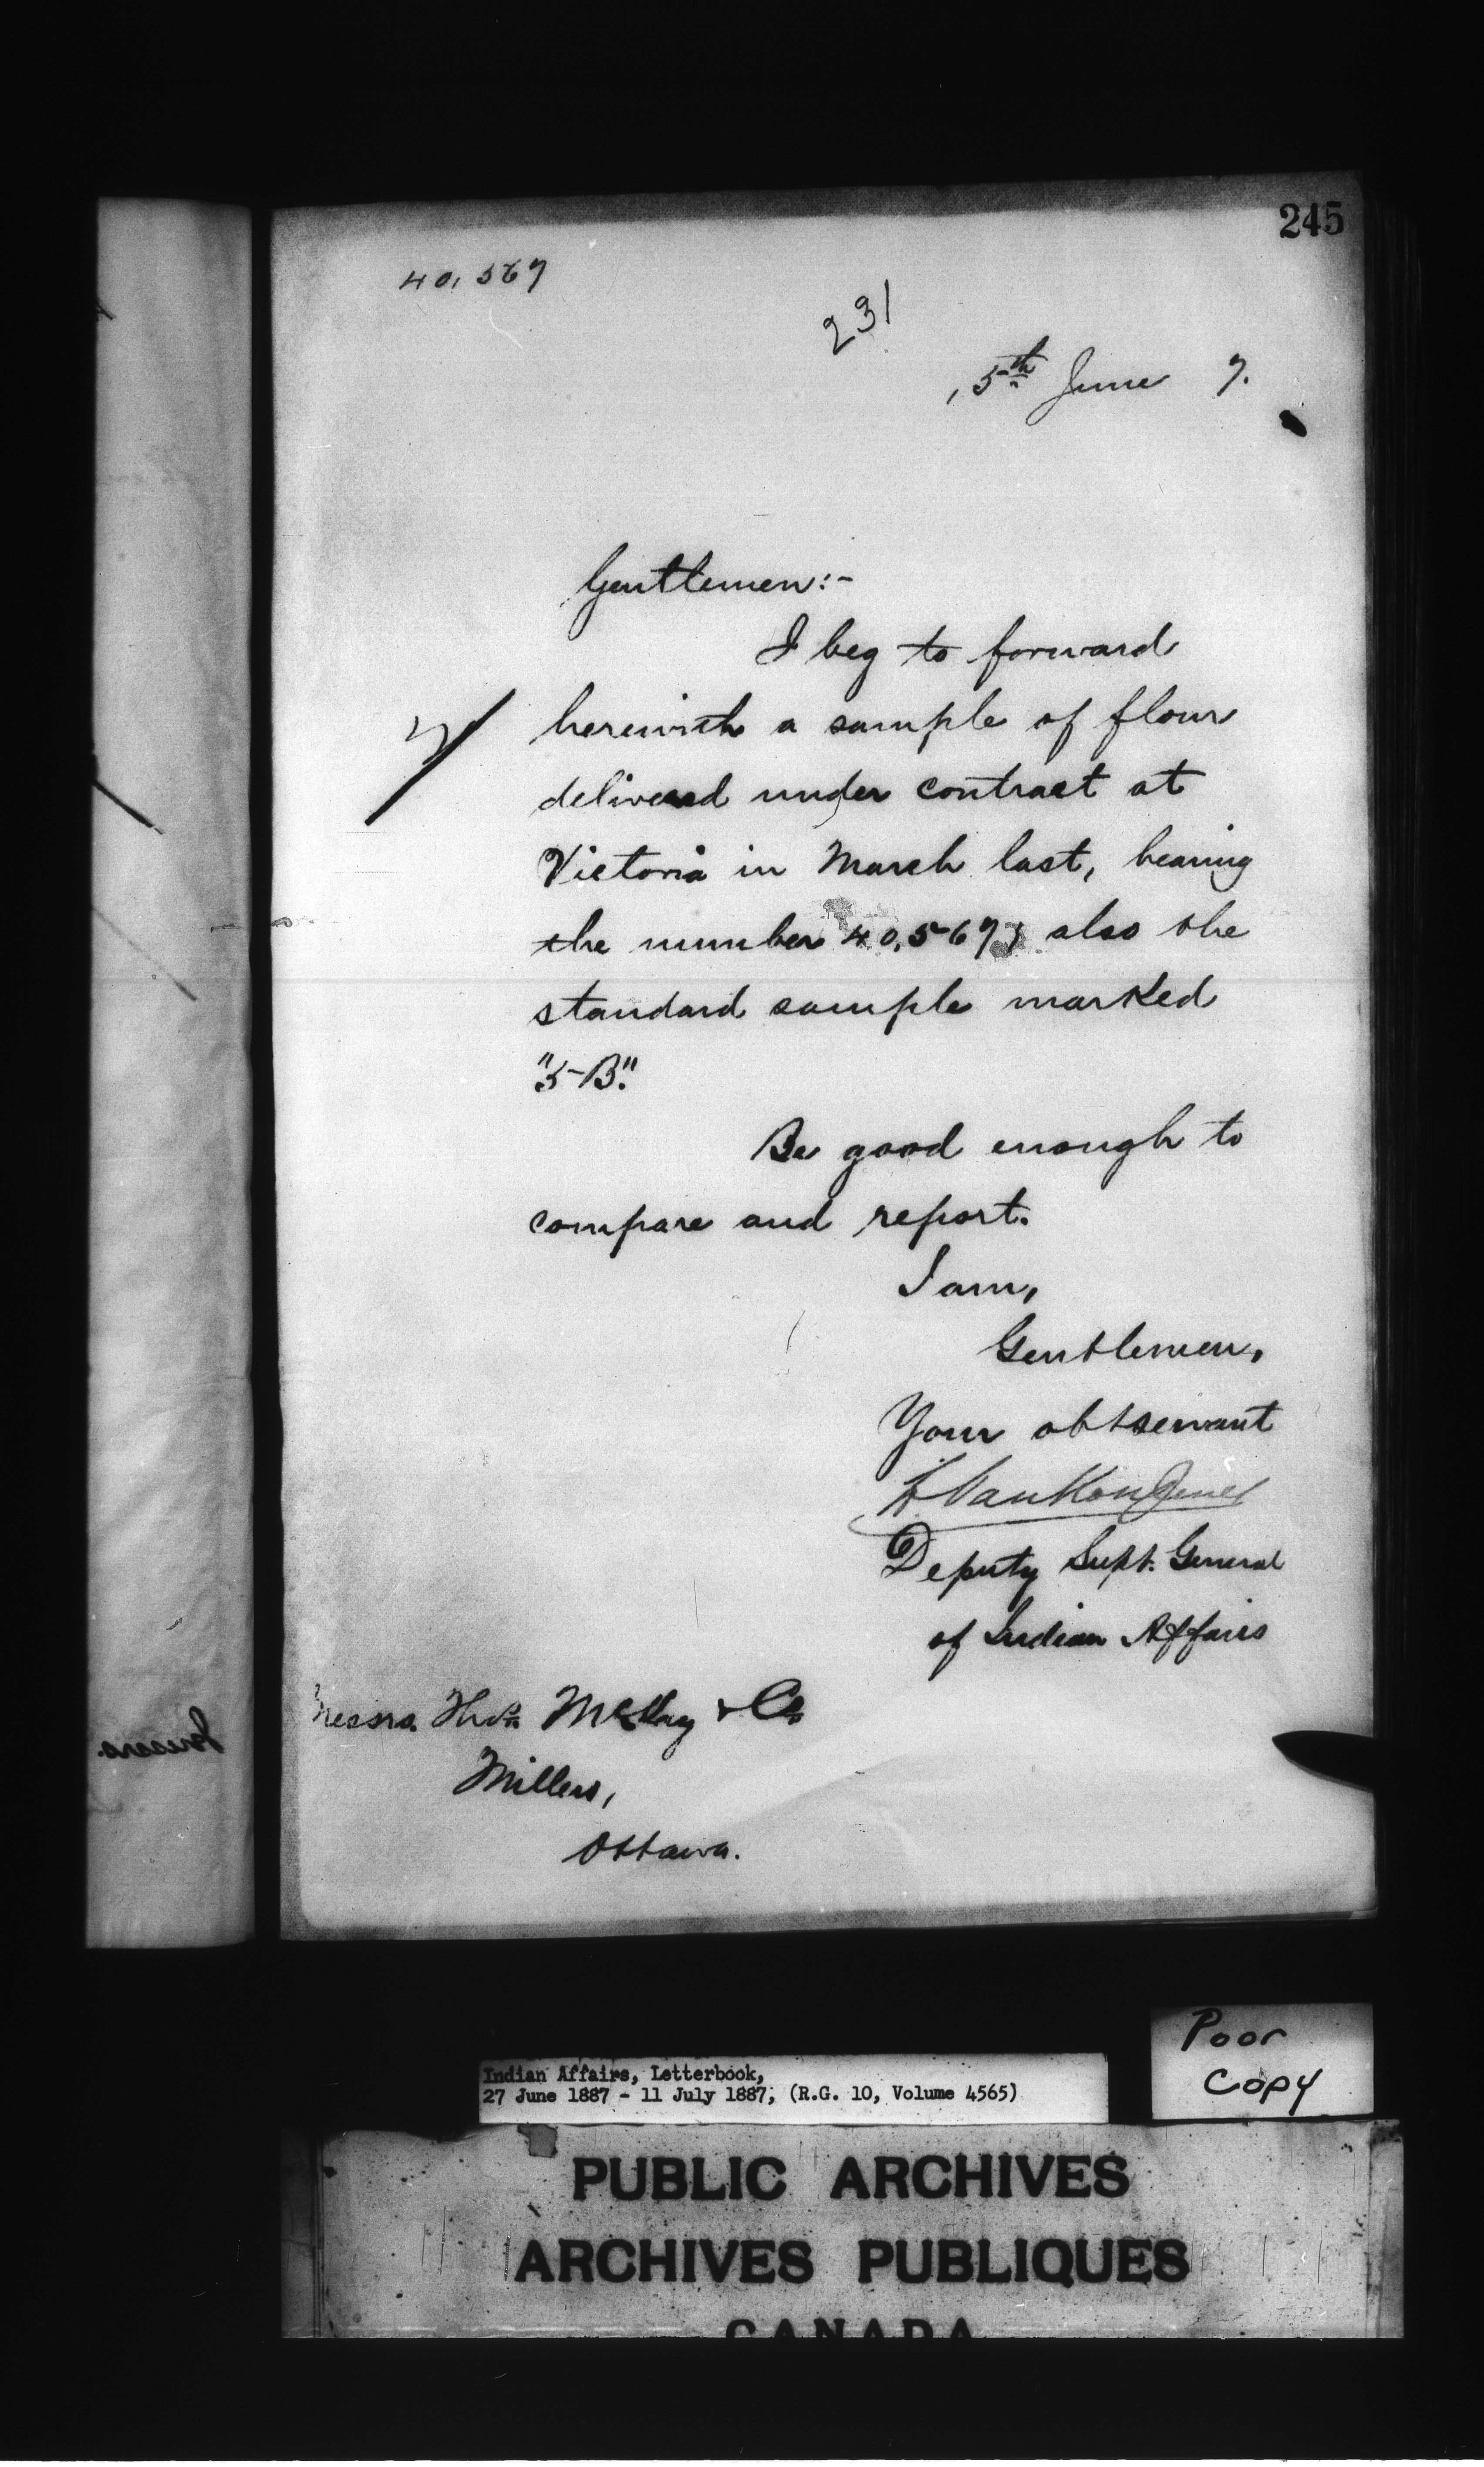 245
40,567
231
5th June 7.
Gentlemen:-
I beg to forward
herewith a sample of flour
delivered under contract at
Victoria in March last, bearing
the number 40,567; also the
standard sample marked
"5-B".
Be good enough to
compare and report.
I am,
Gentlemen,
Your obt servant
L VanKoughnet
Deputy Supt. General
of Indian Affairs
Messrs. Thos. McKay & Co
Millers,
Ottawa.
Messrs.
Poor
Copy
Indian Affairs, Letterbook,
27 June 1887 - 11 July 1887, (R.G. 10, Volume 4565)
PUBLIC ARCHIVES
ARCHIVES PUBLIQUES
CANADA